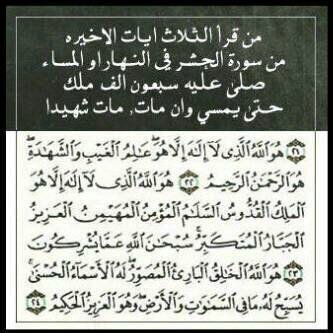 من قرأ الثلاث ايات الاخيره
من سورة الحشر في النهار او المساء
صلى عليه سبعون الف ملك
حتى يمسي وان مات, مات شهيدا
٢١ هُوَ ٱللَّهُ ٱلَّذِى لَآ إِلَٰهَ إِلَّا هُوَ ۖ عَٰلِمُ ٱلْغَيْبِ وَٱلشَّهَٰدَةِ ۖ
هُوَ ٱلرَّحْمَٰنُ ٱلرَّحِيمُ ٢٢ هُوَ ٱللَّهُ ٱلَّذِى لَآ إِلَٰهَ إِلَّا هُوَ
ٱلْمَلِكُ ٱلْقُدُّوسُ ٱلسَّلَٰمُ ٱلْمُؤْمِنُ ٱلْمُهَيْمِنُ ٱلْعَزِيزُ
ٱلْجَبَّارُ ٱلْمُتَكَبِّرُ ۚ سُبْحَٰنَ ٱللَّهِ عَمَّا يُشْرِكُونَ
٢٣ هُوَ ٱللَّهُ ٱلْخَٰلِقُ ٱلْبَارِئُ ٱلْمُصَوِّرُ ۖ لَهُ ٱلْأَسْمَآءُ ٱلْحُسْنَىٰ ۚ
يُسَبِّحُ لَهُۥ مَا فِى ٱلسَّمَٰوَٰتِ وَٱلْأَرْضِ ۖ وَهُوَ ٱلْعَزِيزُ ٱلْحَكِيمُ ٢٤